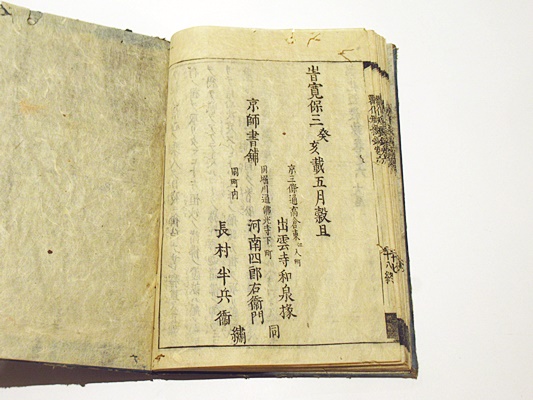 旹寛保三癸亥載五月穀旦
京三條通高倉東エ入町
出雲寺和泉掾
京師書舗
同堀川通佛光寺下町
河南四郎右衛門
同町内
長村半兵衛
同
繍
十八終